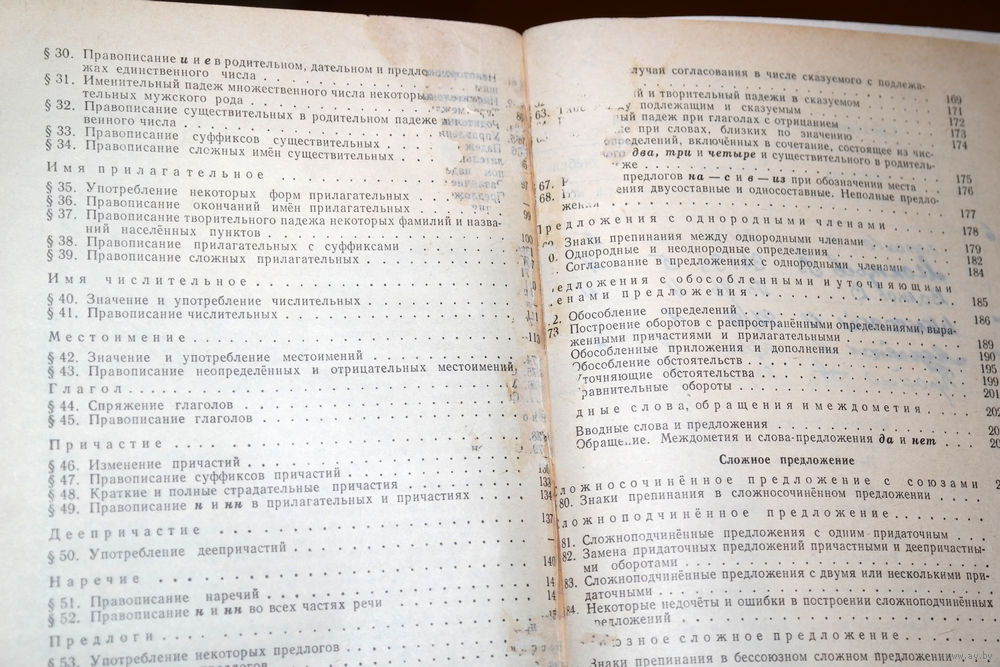 § 30. Правописание и и е в родительном, дательном и предло
жах единственного числа
§ 31. Именительный падеж множественного числа некоторых
тельных мужского рода
§ 32. Правописание существительных в родительном падеже
венного числа
§ 33. Правописание суффиксов существительных
§ 34. Правописание сложных имён существительных
Имя прилагательное
§ 35. Употребление некоторых форм прилагательных
§ 36. Правописание окончаний имён прилагательных
§ 37. Правописание творительного падежа некоторых фамилий и назва-
ний населённых пунктов
§ 38. Правописание прилагательных с суффиксами
§ 39. Правописание сложных прилагательных
Имя числительное
§ 40. Значение и употребление числительных
§ 41. Правописание числительных
Местоимение
§ 42. Значение и употребление местоимений
§ 43. Правописание неопределённых и отрицательных местоимений
Глагол
§ 44. Спряжение глаголов
§ 45. Правописание глаголов
Причастие
§ 46. Изменение причастий
§ 47. Правописание суффиксов причастий 133
§ 48. Краткие и полные страдательные причастия
§ 49. Правописание н и нн в прилагательных и причастиях 134
Деепричастие 137
§ 50. Употребление деепричастий
Наречие 140
§ 51. Правописание наречий 14
§ 52. Правописание н и нн во всех частях речи 14
Предлоги
§ 53. Употребление некоторых предлогов
лучаи согласования в числе сказуемого с подлежа-
169
й и творительный падежи в сказуемом 171
63. подлежащим и сказуемым 172
й падеж при глаголах с отрицанием 173
ие при словах, близких по значению 174
определений, включённых в сочетание, состоящее из чис-
ного два, три и четыре и существительного в родитель-
же 175
предлогов на — с и в — из при обозначении места 176
67.
68. ения двусоставные и односоставные. Неполные предло-
жения 177
редложения с однородными членами 178
Знаки препинания между однородными членами
0. Однородные и неоднородные определения 179
Согласование в предложениях с однородными членами 182
184
едложения с обособленными и уточняющими
енами предложения 185
2. Обособление определений 186
73 Построение оборотов с распространёнными определениями, выра-
женными причастиями и прилагательными 189
Обособленные приложения и дополнения 190
Обособление обстоятельств 195
точняющие обстоятельства 199
равнительные обороты 201
дные слова, обращения и междометия 202
Вводные слова и предложения
Обращение. Междометия и слова-предложения да и нет
Сложное предложение
ложносочинённое предложение с союзами
80. Знаки препинания в сложносочинённом предложении
ложноподчинённое предложение
81. Сложноподчинённые предложения с одним придаточным
82. Замена придаточных предложений причастными и деепричастны-
ми оборотами
83. Сложноподчинённые предложения с двумя или несколькими при-
даточными
84. Некоторые недочёты и ошибки в построении сложноподчинённых
редложений
юзное сложное предложение
Знаки препинания в бессоюзном сложном предложении
www.ay.by